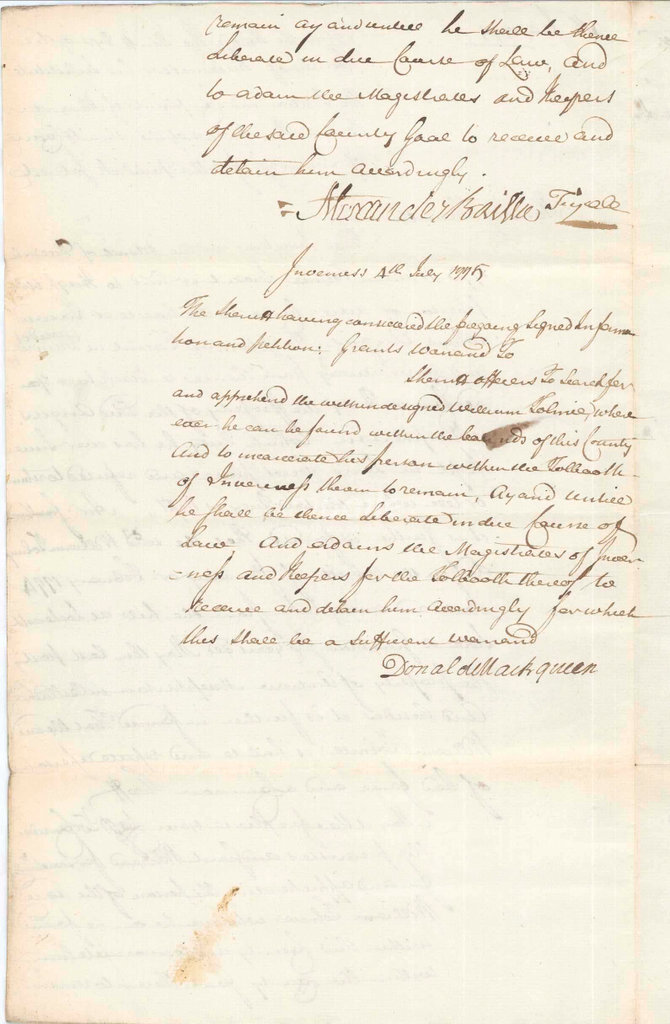 remain ay and untill he shall be thence
Liberate in due Course of Law, and
to adam the Magistrates and Keepers
of the said County Goal to receive and
detain him accordingly.
Alexander Baillie Fiscall
Inverness 4th July
The Sheriff having considered the foregoing Signed Informa
tion and petition; Grants Warrand To
Sheriff officers To Search for
and apprehend the within designed William Tolmie, where
ever he can be found within the bounds of this County
And to incarcerate his person within the Tolbooth
of Inverness therein to remain, Ay and Untill
he shall be thence Liberate in due Course of
Law, And adams the Magistrates of Inver
=ness and Keepers for the Tolbooth thereof to
Receive and detain him accordingly for which
this shall be a Sufficient Warrand
Donald Mackqueen